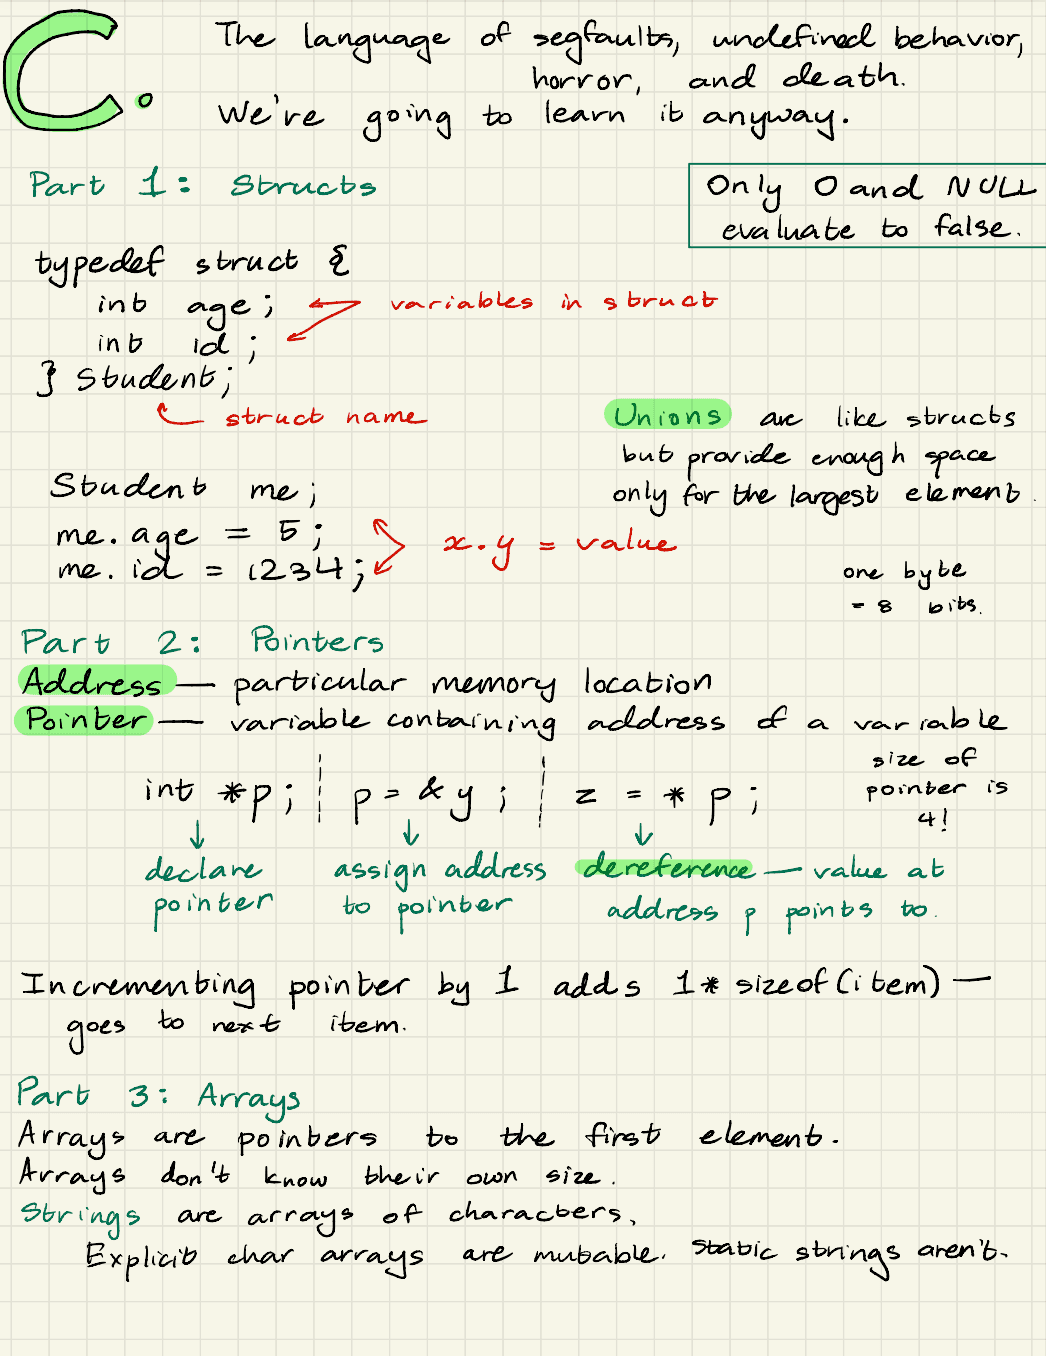 C.
The language of segfaults, undefined behavior,
horror, and death.
We're going to learn it anyway.
Part 1: Structs
Only 0 and NULL
evaluate to false.
typedef struct {
int age; variables in struct
int id;
} Student;
struct name
Unions are like structs
but provide enough space
only for the largest element.
Student me;
me.age = 5;
x.y = value
me.id = 1234;
one byte
= 8 bits.
Part 2: Pointers
Address — particular memory location
Pointer — variable containing address of a variable
size of
pointer is
4!
int *p; p = &y; z = *p;
declare
pointer
assign address
to pointer
dereference — value at
address p points to.
Incrementing pointer by 1 adds 1* sizeof(item) —
goes to next item.
Part 3: Arrays
Arrays are pointers to the first element.
Arrays don't know their own size.
Strings are arrays of characters.
Explicit char arrays are mutable. Static strings aren't.